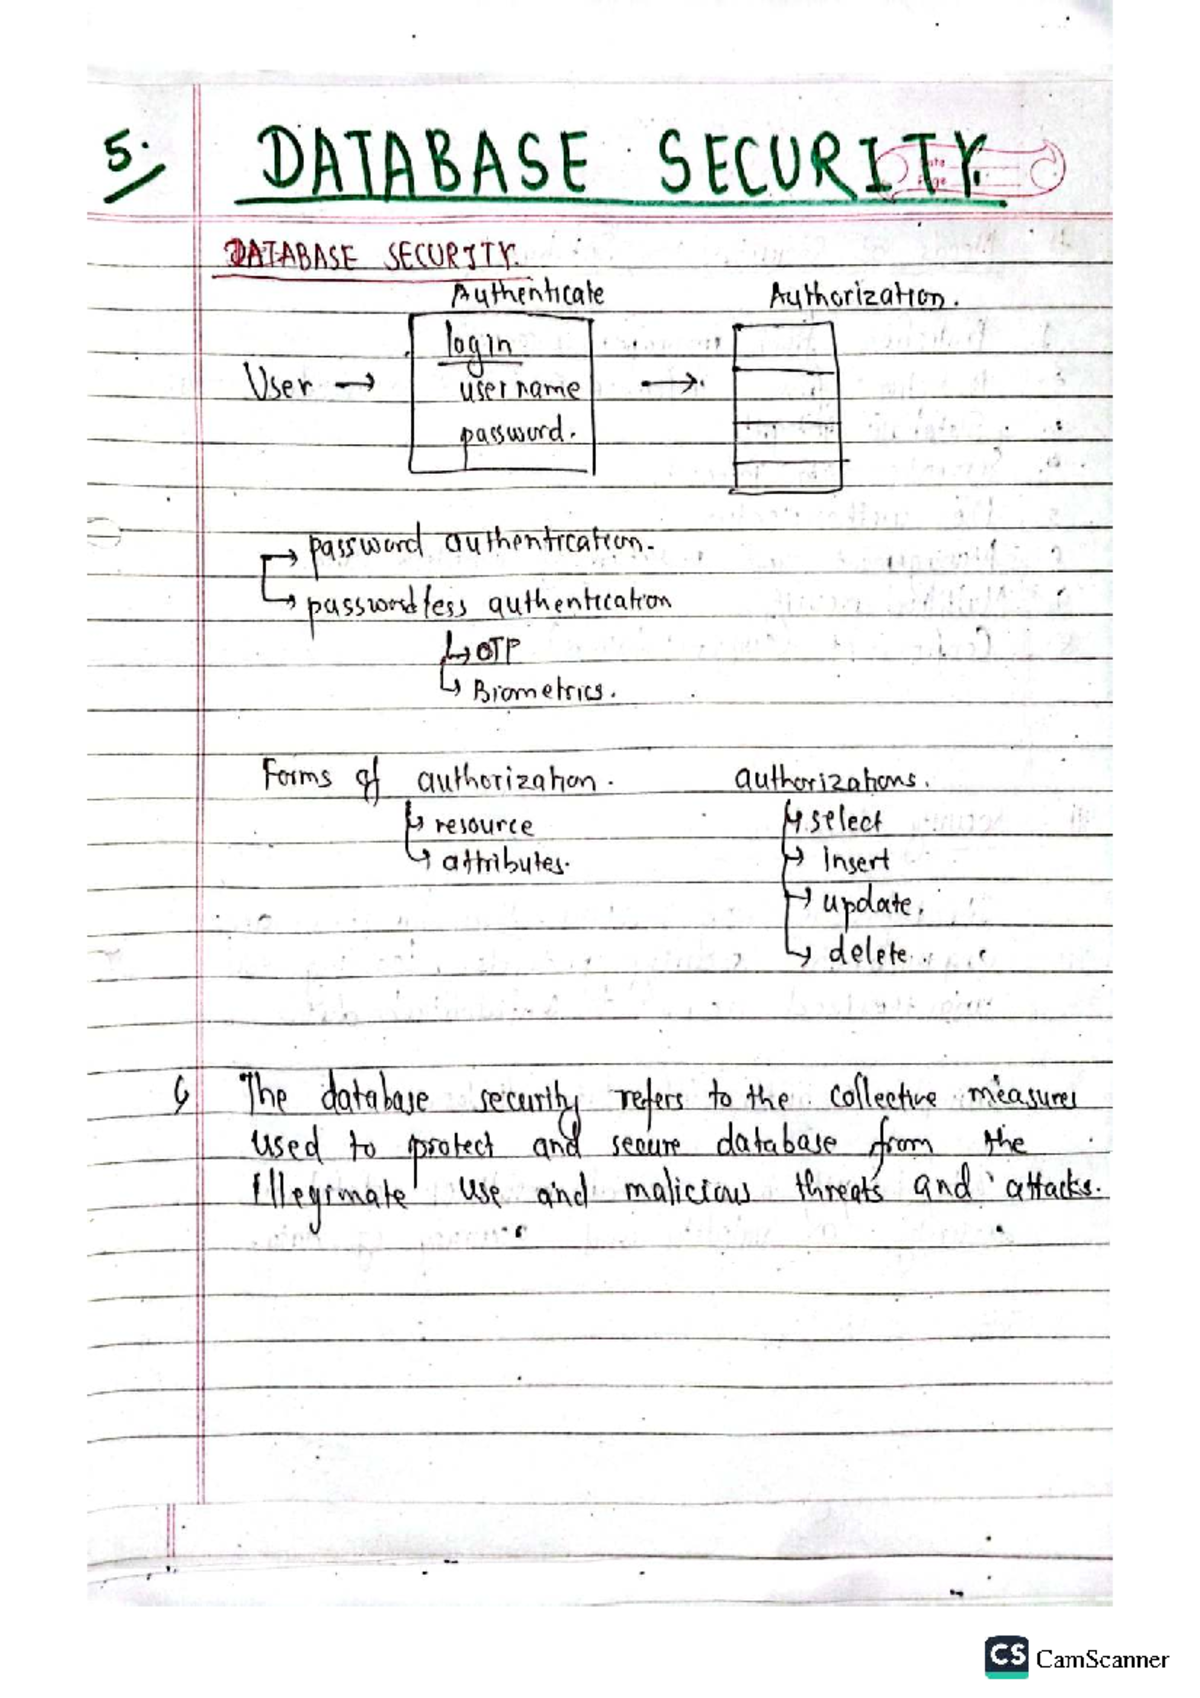 5.
DATABASE SECURITY.
Date
Page
DATABASE SECURITY.
Authenticate
Authorization.
login
User →
username
→
password.
→ password authentication.
→ passwordless authentication
↳ OTP
↳ Biometrics.
Forms of authorization. authorizations.
↳ resource ↳ select
↳ attributes. → insert
→ update.
↳ delete.
↳ The database security refers to the collective measures
used to protect and secure database from the
illegimate use and malicious threats and attacks.
CS CamScanner